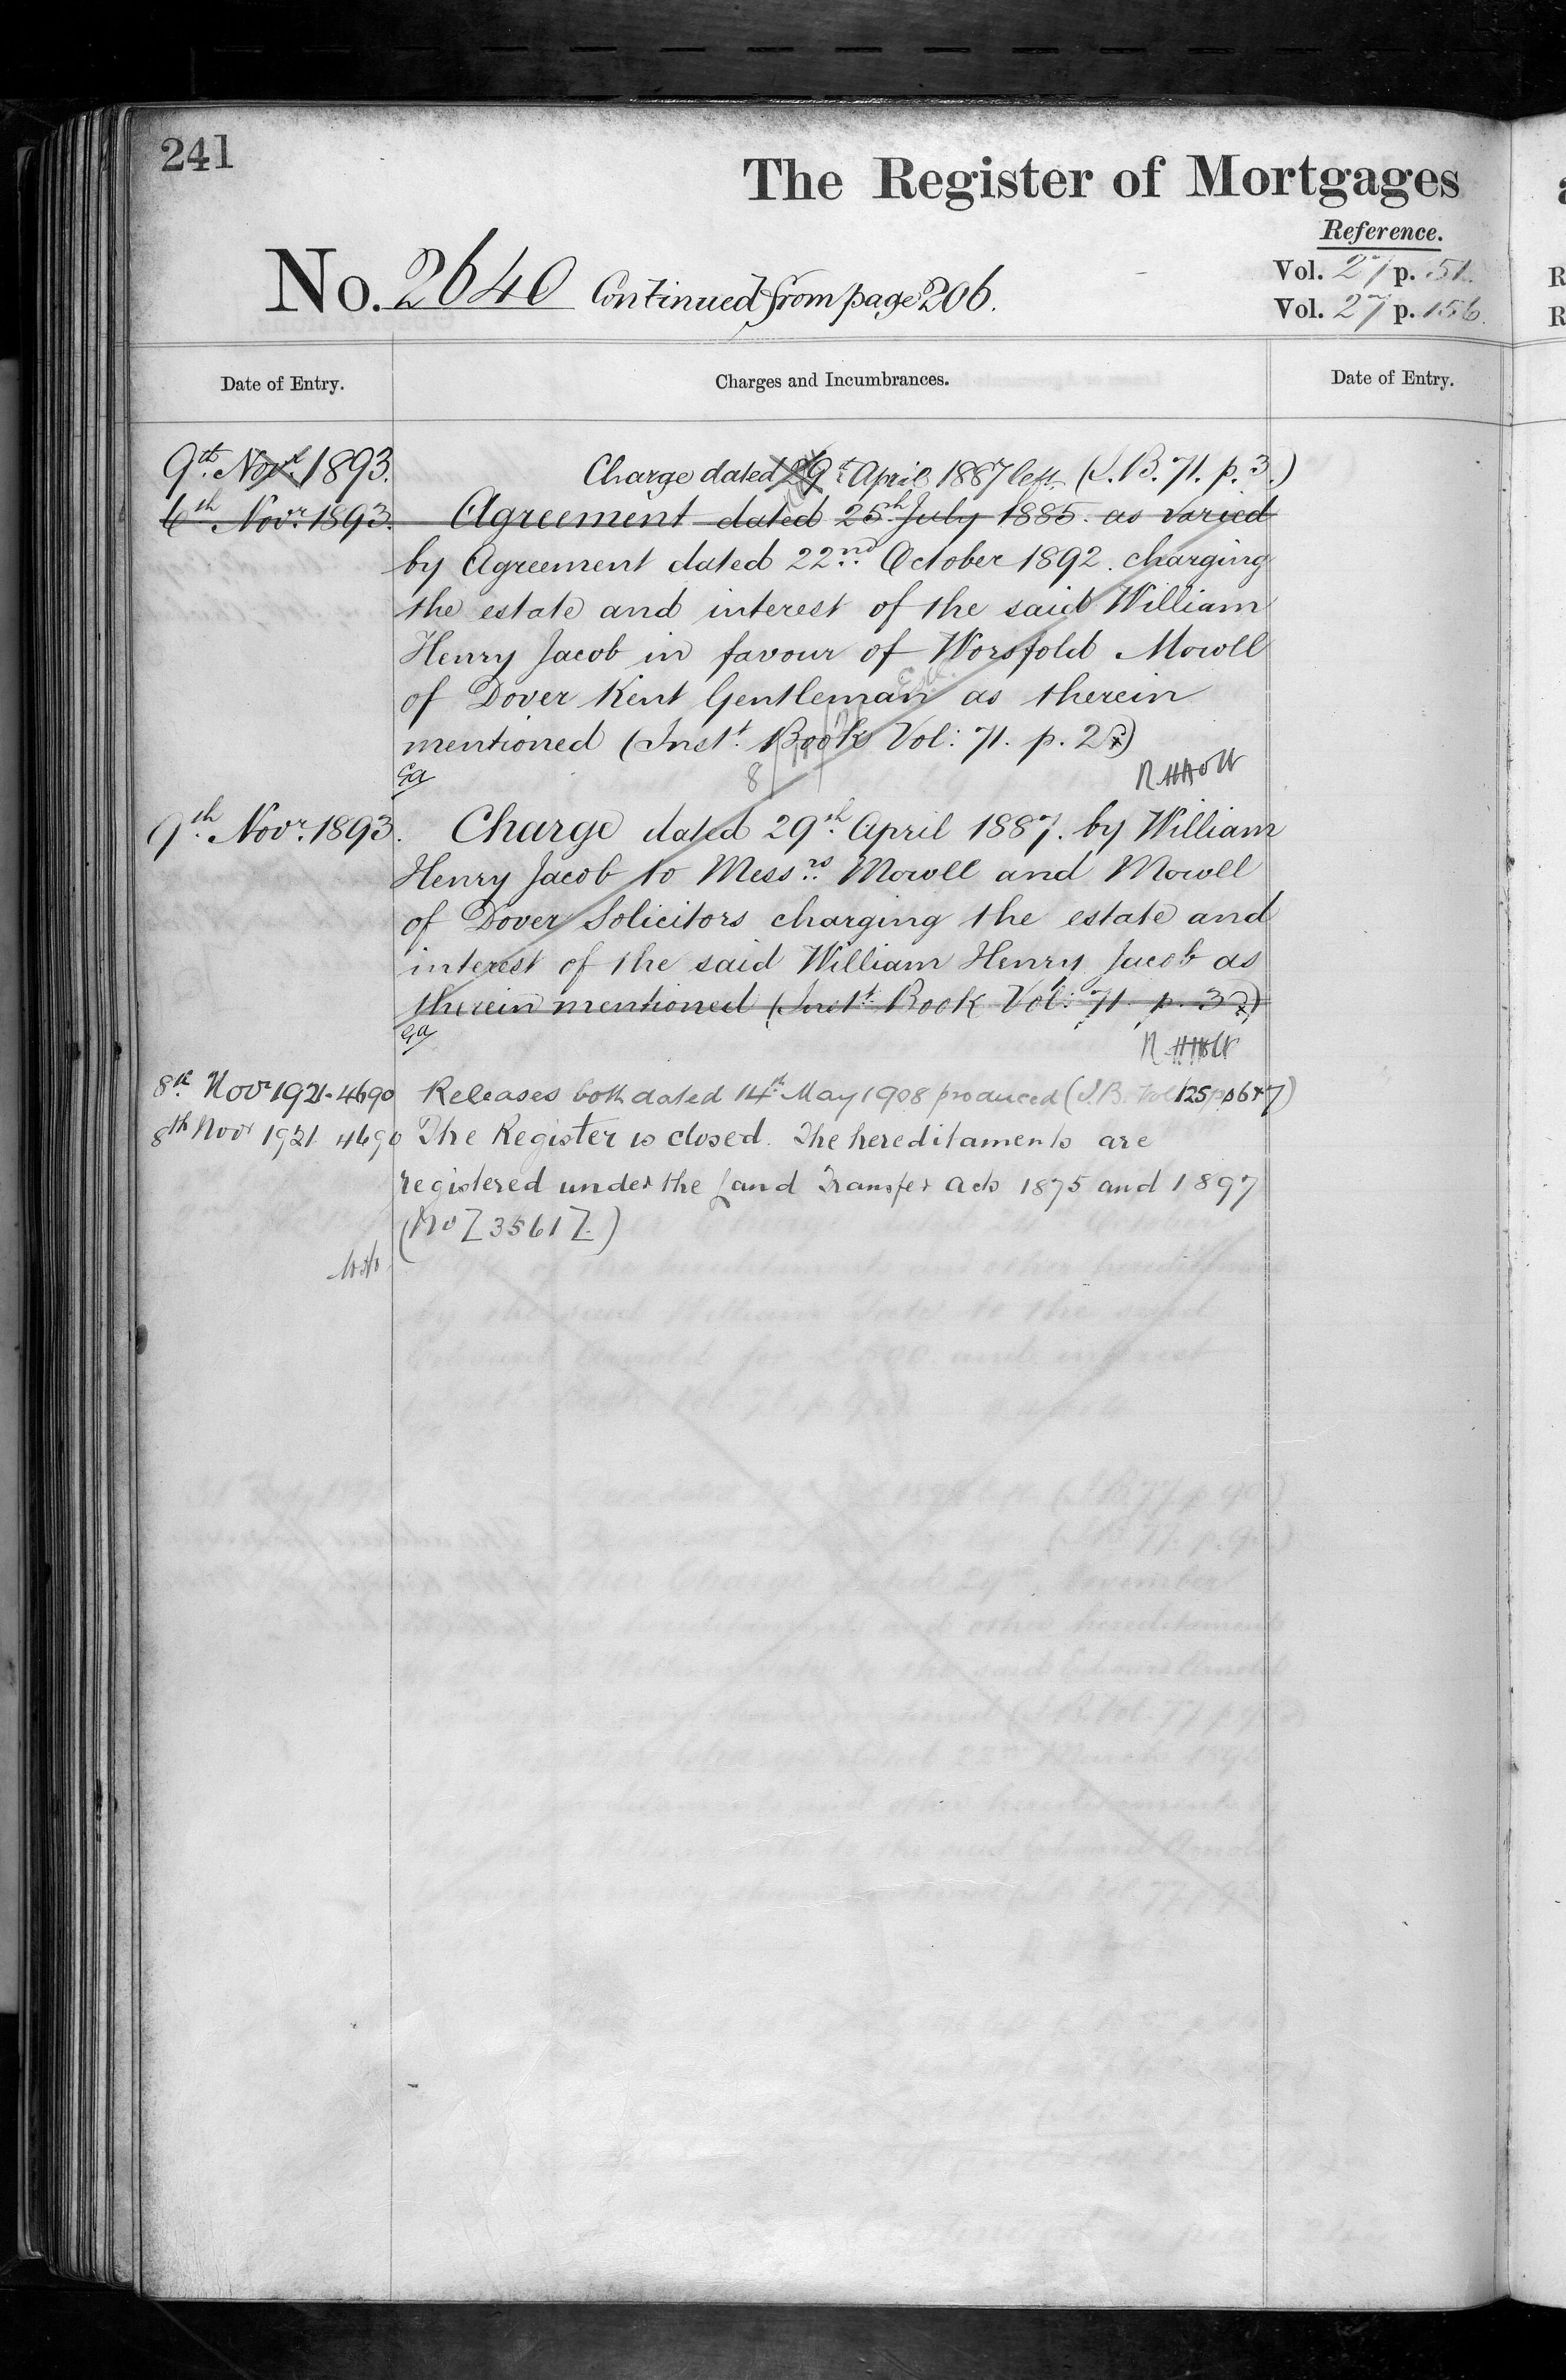 241
The Register of Mortgages
Reference.
No. 2640 Continued from page 206.
Vol. 27 p. 51.
Vol. 27 p. 156.
Date of Entry. Charges and Incumbrances. Date of Entry.
9th Novr 1893. Charge dated 29th April 1887 left (I.B. 71. p. 3.)
6th Novr. 1893. Agreement dated 25th July 1885. as varied
by Agreement dated 22nd October 1892. charging
the estate and interest of the said William
Henry Jacob in favour of Worsfold Mowll
of Dover Kent Gentleman as therein
mentioned (Inst. Book Vol: 71. p. 2)
9th Novr. 1893. Charge dated 29th April 1887. by William
Henry Jacob to Messrs. Mowll and Mowll
of Dover Solicitors charging the estate and
interest of the said William Henry Jacob as
therein mentioned (Inst. Book Vol: 71. p. 3)
8th Novr 1921-4690 Releases both dated 14th May 1908 produced (I.B. Vol 125 pp 6+7)
8th Novr 1921 4690 The Register is closed. The hereditaments are
registered under the Land Transfer Acts 1875 and 1897
(No Z 3561 Z.)